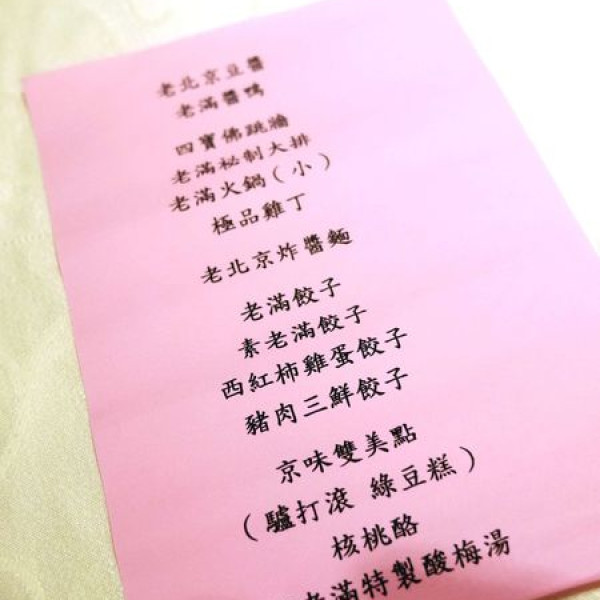 老北京豆醬
老滿醬鴨
四寶佛跳牆
老滿秘制大排
老滿火鍋（小）
極品雞丁
老北京炸醬麵
老滿餃子
素老滿餃子
西紅柿雞蛋餃子
豬肉三鮮餃子
京味雙美點
（驢打滾 綠豆糕）
核桃酪
老滿特製酸梅湯